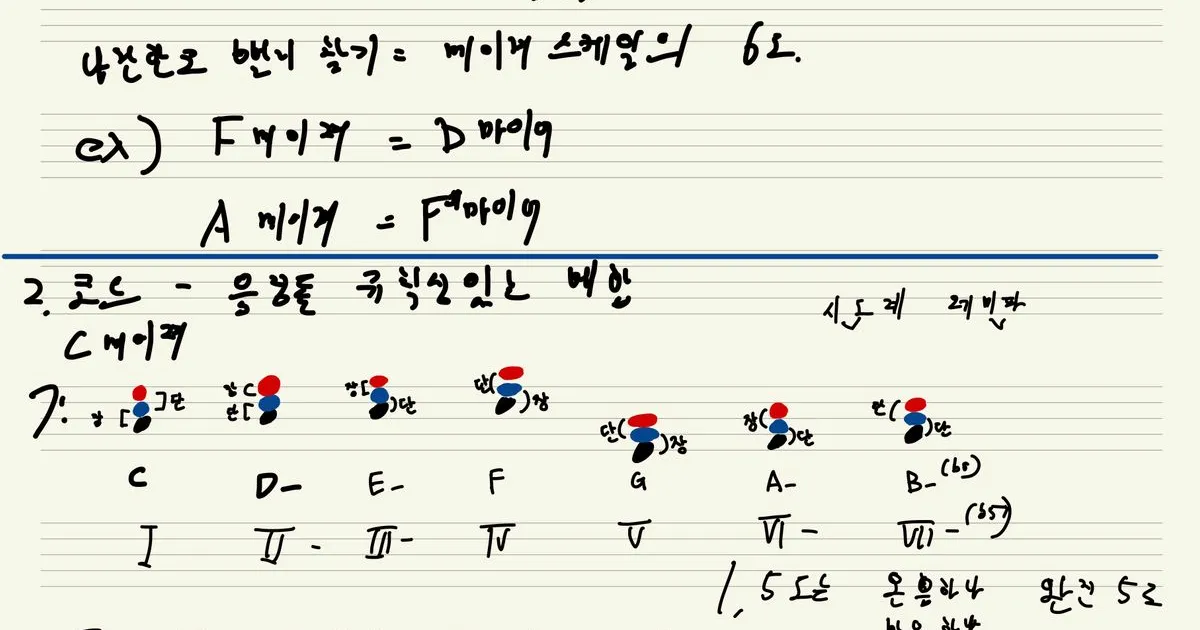 나란한조 빨리 찾기 = 메이저 스케일의 6도.
ex) F 메이저 = D 마이너
A 메이저 = F#마이너
2. 코드 - 음정들 규칙산있는 배합
C 메이저
시 도 레 레 미 파
장 [ ] 단 장 [ 단 [ 장 [ ) 단 단 ( ) 장 단 ( ) 장 장 ( ) 단 단 ( ) 단
C D- E- F G A- B-(b5)
I II- III- IV V VI- VII-(b5)
1, 5도는 온음하나 완전 5도